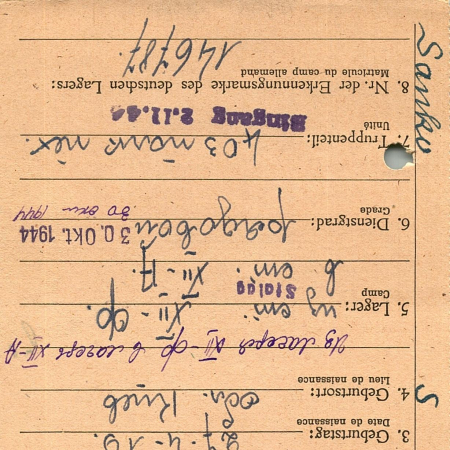 3. Geburtstag:
Date de naissance
4. Geburtsort: обл. Киев
Lieu de naissance
Из лагеря XII-ф в лагерь XII-А
5. Lager: XII-ф.
Camp
Stalag
XII-А
30. Okt. 1944
6. Dienstgrad: рядовой
Grade
30 окт 1944
7. Truppenteil: 403
Unité
Eingang 2.11.44
8. Nr. der Erkennungsmarke des deutschen Lagers:
Matricule du camp allemand
146787.
S